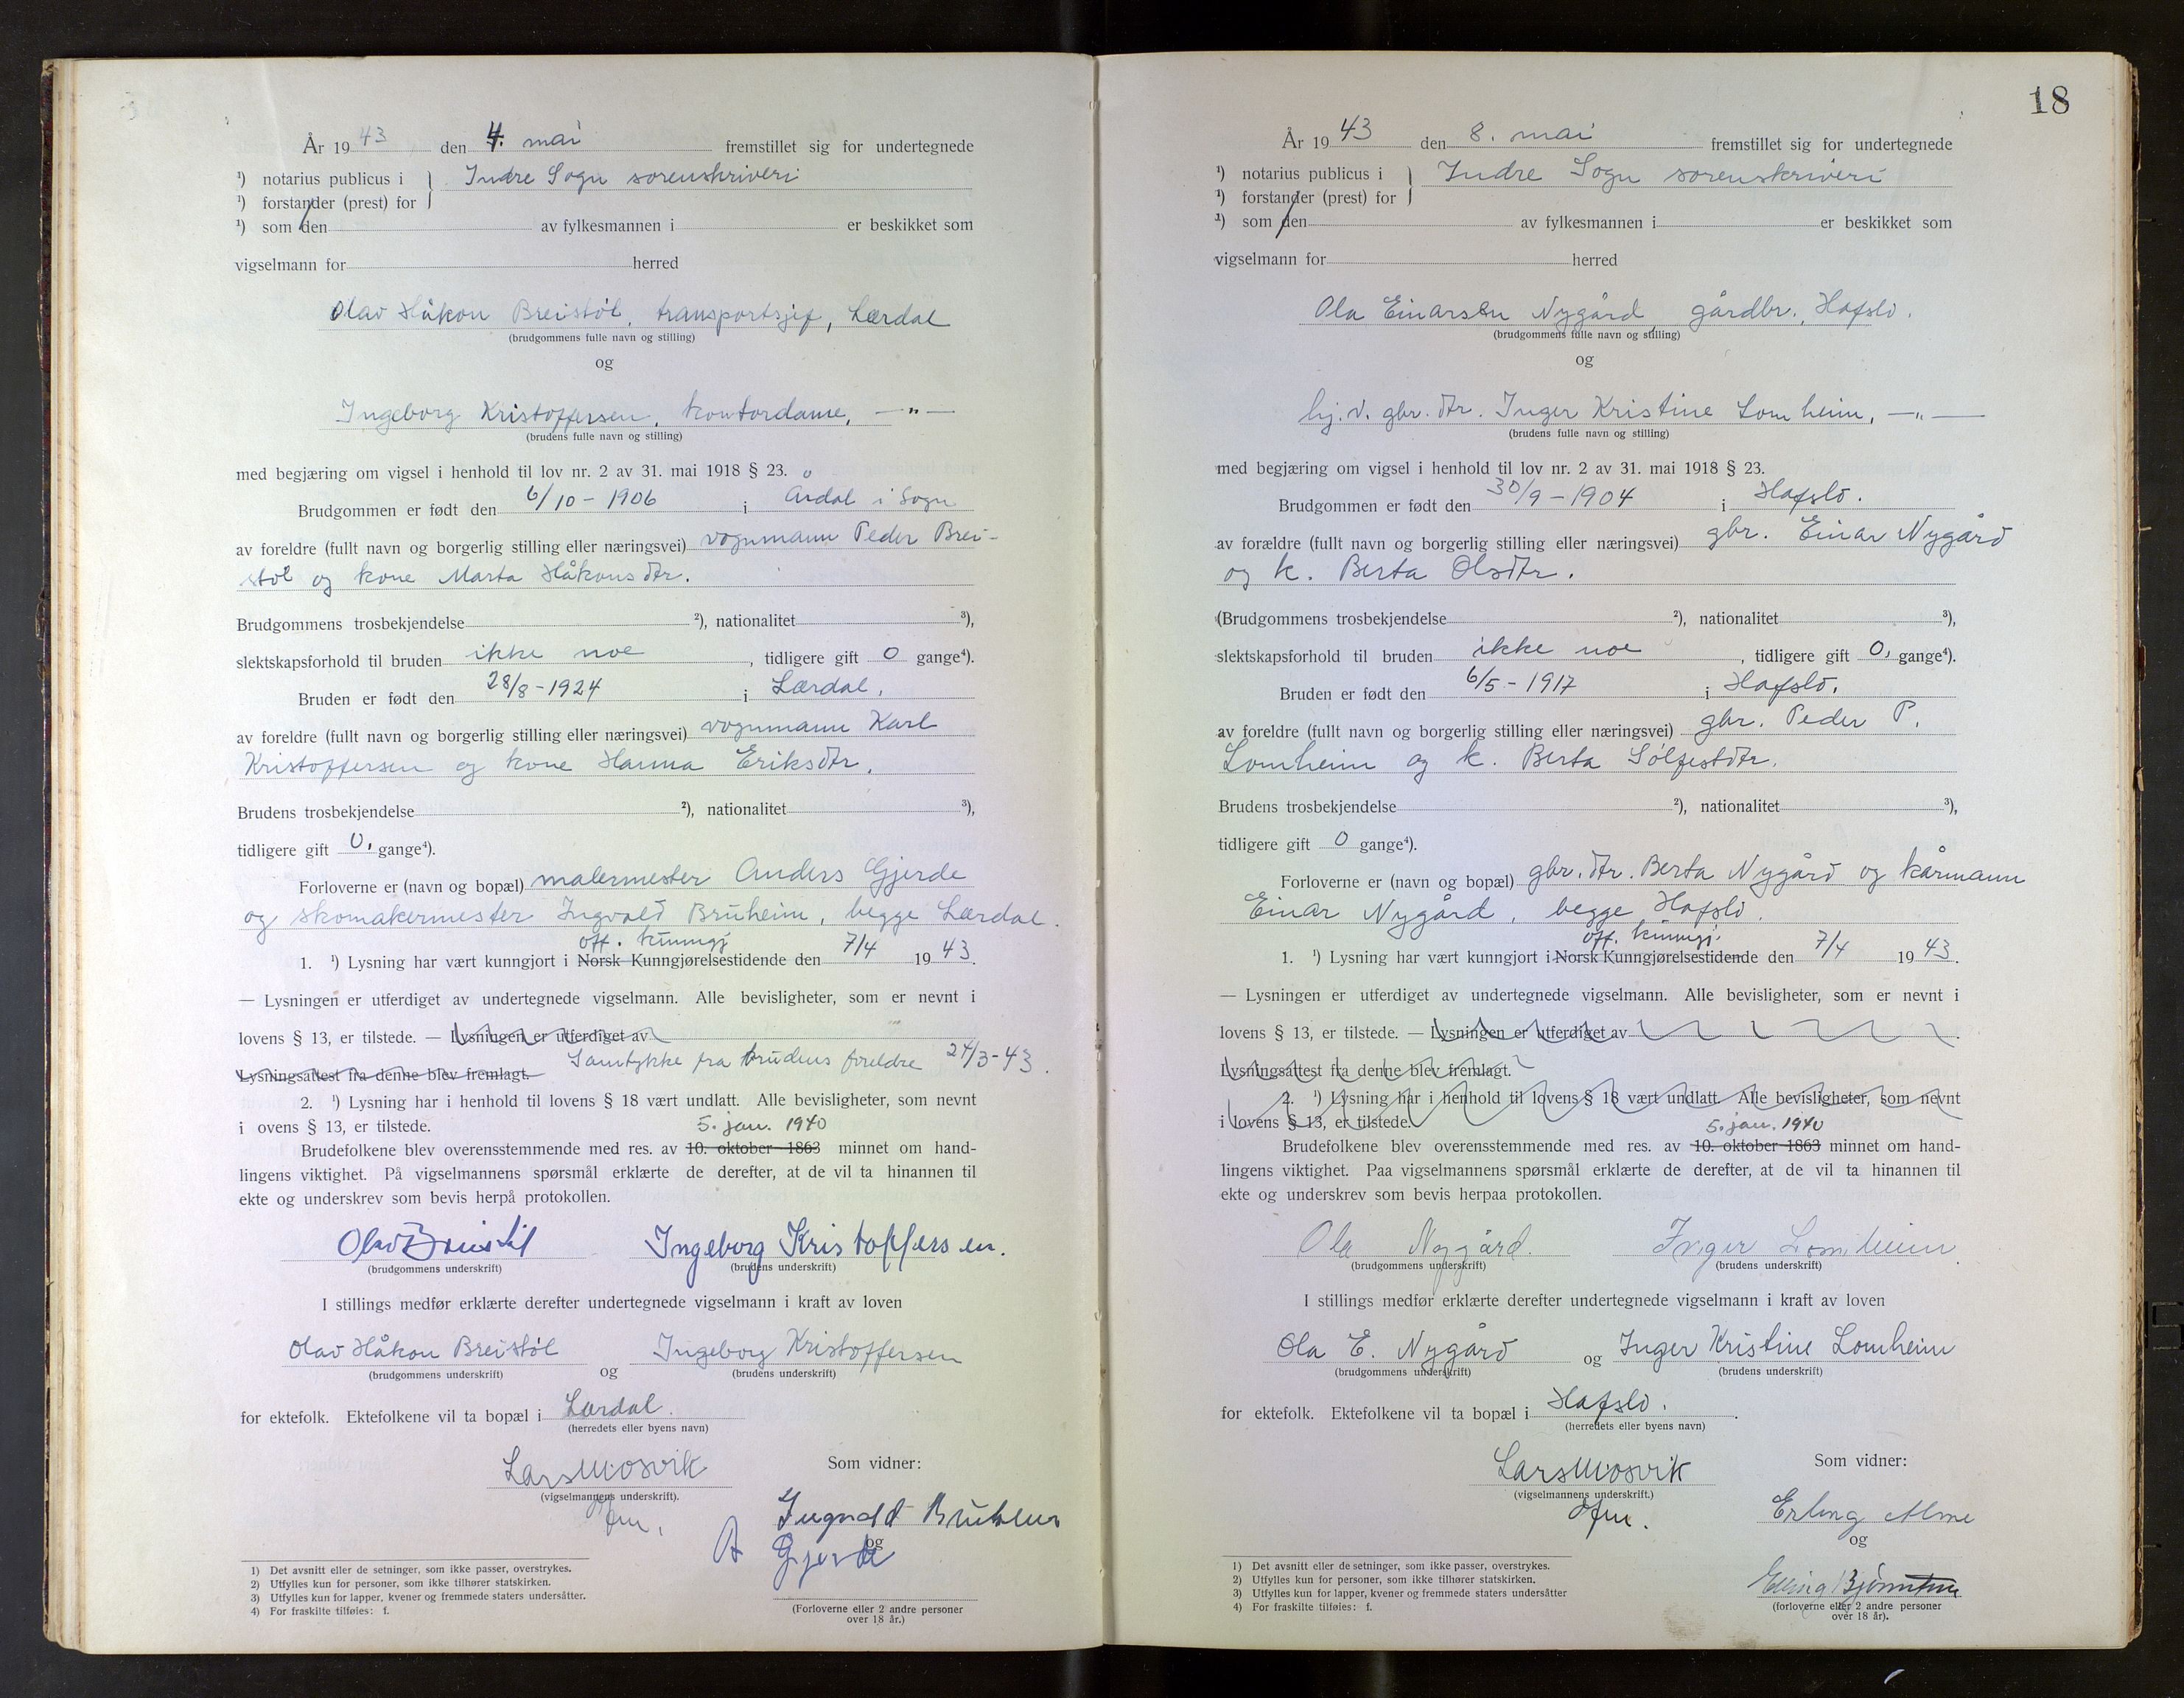 År 1943 den 4. mai fremstillet sig for undertegnede
¹) notarius publicus i } Indre Sogn sorenskriveri
¹) forstander (prest) for
¹) som den av fylkesmannen i er beskikket som
vigselmann for herred
Olav Håkon Breistøl, transportsjef, Lærdal
(brudgommens fulle navn og stilling)
og
Ingeborg Kristoffersen, kontordame, —"—
(brudens fulle navn og stilling)
med begjæring om vigsel i henhold til lov nr. 2 av 31. mai 1918 § 23.
Brudgommen er født den 6/10 - 1906 i Årdal i Sogn
av foreldre (fullt navn og borgerlig stilling eller næringsvei) vognmann Peder Brei-
støl og kone Marta Håkonsdtr.
Brudgommens trosbekjendelse ²), nationalitet ³),
slektskapsforhold til bruden ikke noe, tidligere gift 0 gange⁴).
Bruden er født den 28/8 - 1924 i Lærdal,
av foreldre (fullt navn og borgerlig stilling eller næringsvei) vognmann Karl
Kristoffersen og kone Hanna Eriksdtr.
Brudens trosbekjendelse ²), nationalitet ³),
tidligere gift 0. gange⁴).
Forloverne er (navn og bopæl) malermester Anders Gjerde
og skomakermester Ingvald Bruheim, begge Lærdal.
off. kunngj
1. ¹) Lysning har vært kunngjort i Norsk Kunngjørelsestidende den 7/4 1943.
— Lysningen er utferdiget av undertegnede vigselmann. Alle bevisligheter, som er nevnt i
lovens § 13, er tilstede. — Lysningen er utferdiget av
Lysningsattest fra denne blev fremlagt. Samtykke fra brudens foreldre 24/3-43.
2. ¹) Lysning har i henhold til lovens § 18 vært undlatt. Alle bevisligheter, som nevnt
i ovens § 13, er tilstede. 5. jan. 1940
Brudefolkene blev overensstemmende med res. av 10. oktober 1863 minnet om hand-
lingens viktighet. På vigselmannens spørsmål erklærte de derefter, at de vil ta hinannen til
ekte og underskrev som bevis herpå protokollen.
Olav Breistøl Ingeborg Kristoffersen.
(brudgommens underskrift) (brudens underskrift)
I stillings medfør erklærte derefter undertegnede vigselmann i kraft av loven
Olav Håkon Breistøl og Ingeborg Kristoffersen
(brudgommens underskrift) (brudens underskrift)
for ektefolk. Ektefolkene vil ta bopæl i Lærdal.
(herredets eller byens navn)
Lars Mosvik Som vidner:
(vigselmannens underskrift).
fm. Ingvald Bruheim
og
A Gjerde
1) Det avsnitt eller de setninger, som ikke passer, overstrykes.
2) Utfylles kun for personer, som ikke tilhører statskirken.
3) Utfylles kun for lapper, kvener og fremmede staters undersåtter.
4) For fraskilte tilføies: f.
(Forloverne eller 2 andre personer
over 18 år.)
18
År 1943 den 8. mai fremstillet sig for undertegnede
¹) notarius publicus i } Indre Sogn sorenskriveri
¹) forstander (prest) for
¹) som den av fylkesmannen i er beskikket som
vigselmann for herred
Ola Einarsen Nygård, gårdbr., Hafslo.
(brudgommens fulle navn og stilling)
og
hj.v. gbr. dtr. Inger Kristine Lomheim, —"—
(brudens fulle navn og stilling)
med begjæring om vigsel i henhold til lov nr. 2 av 31. mai 1918 § 23.
Brudgommen er født den 30/9 - 1904 i Hafslo.
av forældre (fullt navn og borgerlig stilling eller næringsvei) gbr. Einar Nygård
og k. Berta Olsdtr.
(Brudgommens trosbekjendelse ²), nationalitet ³),
slektskapsforhold til bruden ikke noe, tidligere gift 0, gange⁴).
Bruden er født den 6/5 - 1917 i Hafslo.
av foreldre (fullt navn og borgerlig stilling eller næringsvei) gbr. Peder P.
Lomheim og k. Berta Sølfestdtr.
Brudens trosbekjendelse ²), nationalitet ³),
tidligere gift 0 gange⁴).
Forloverne er (navn og bopæl) gbr. dtr. Berta Nygård og kårmann
Einar Nygård, begge Hafslo.
off. kunngj.
1. ¹) Lysning har vært kunngjort i Norsk Kunngjørelsestidende den 7/4 1943.
— Lysningen er utferdiget av undertegnede vigselmann. Alle bevisligheter, som er nevnt i
lovens § 13, er tilstede. — Lysningen er utferdiget av
Lysningsattest fra denne blev fremlagt.
2. ¹) Lysning har i henhold til lovens § 18 vært undlatt. Alle bevisligheter, som nevnt
i lovens § 13, er tilstede. 5. jan. 1940
Brudefolkene blev overensstemmende med res. av 10. oktober 1863 minnet om hand-
lingens viktighet. Paa vigselmannens spørsmål erklærte de derefter, at de vil ta hinannen til
ekte og underskrev som bevis herpaa protokollen.
Ola Nygård. Inger Lomheim
(brudgommens underskrift) (brudens underskrift)
I stillings medfør erklærte derefter undertegnede vigselmann i kraft av loven
Ola E. Nygård og Inger Kristine Lomheim
(brudgommens underskrift) (brudens underskrift)
for ektefolk. Ektefolkene vil ta bopæl i Hafslo.
(herredets eller byens navn)
Lars Mosvik Som vidner:
(vigselmannens underskrift.)
fm. Erling Alme
og
1) Det avsnitt eller de setninger, som ikke passer, overstrykes.
2) Utfylles kun for personer, som ikke tilhører statskirken.
3) Utfylles kun for lapper, kvener og fremmede staters undersåtter
4) For fraskilte tilføies: f.
(forloverne eller 2 andre personer
over 18 år).